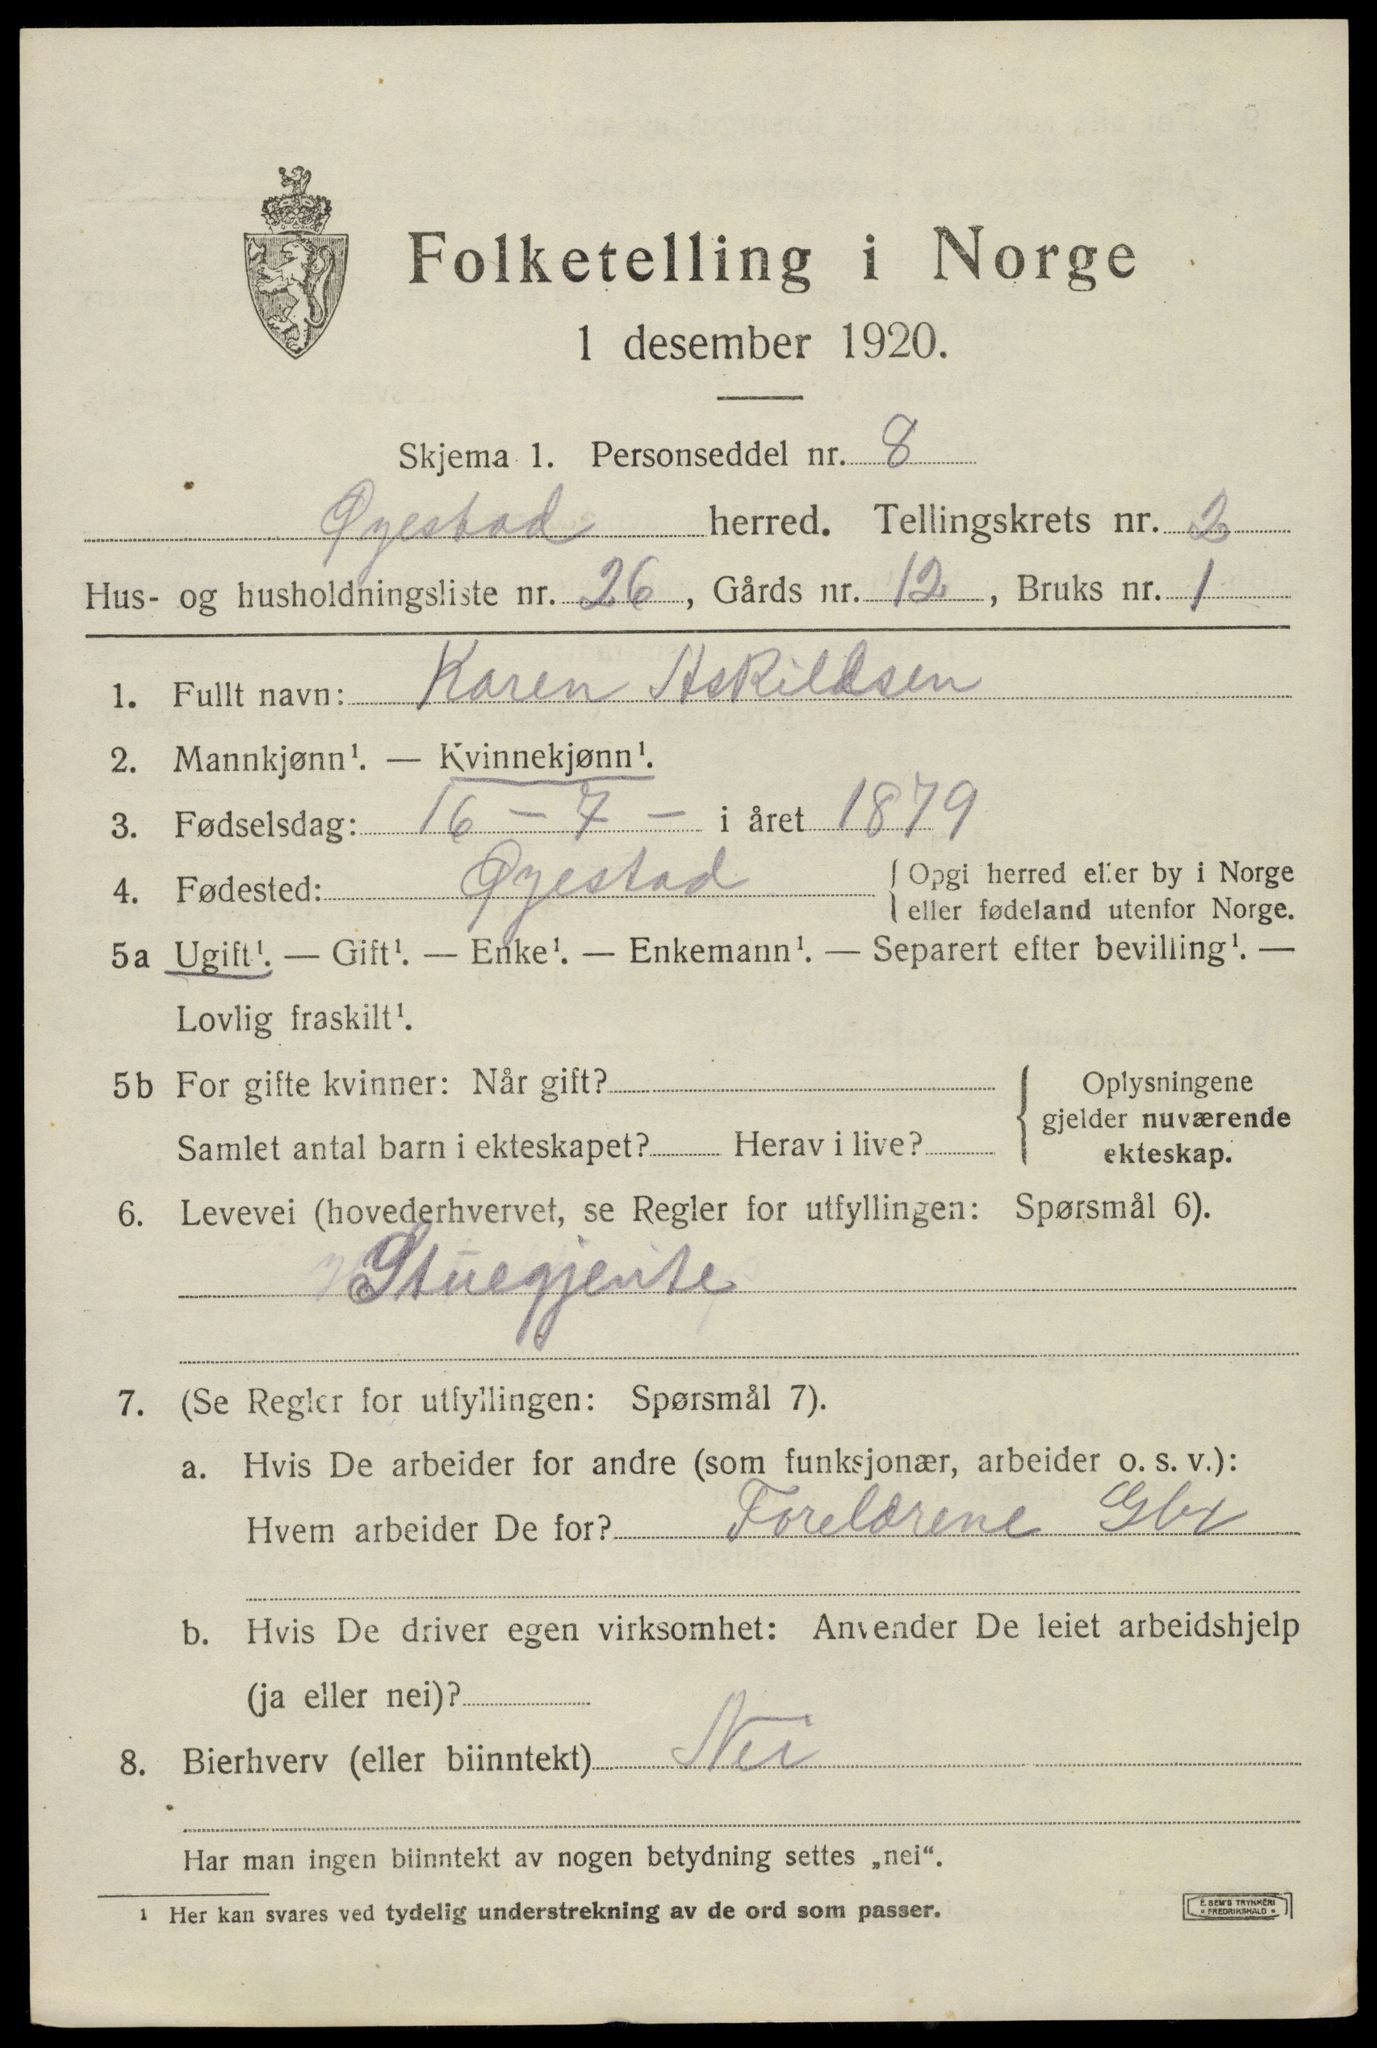 Folketelling i Norge
1 desember 1920.
Skjema 1. Personseddel nr. 8
Øyestad herred. Tellingskrets nr. 2
Hus- og husholdningsliste nr. 26, Gårds nr. 12, Bruks nr. 1
1. Fullt navn: Karen Askildsen
2. Mannkjønn¹. — Kvinnekjønn¹.
3. Fødselsdag: 16 – 7 – i året 1879
4. Fødested: Øyestad { Opgi herred eller by i Norge
eller fødeland utenfor Norge.
5a Ugift¹. — Gift¹. — Enke¹. — Enkemann¹. — Separert efter bevilling¹. —
Lovlig fraskilt¹.
5b For gifte kvinner: Når gift?
Samlet antal barn i ekteskapet? Herav i live?
{ Oplysningene
gjelder nuværende
ekteskap.
6. Levevei (hovederhvervet, se Regler for utfyllingen: Spørsmål 6).
Stuegjente
7. (Se Regler for utfyllingen: Spørsmål 7).
a. Hvis De arbeider for andre (som funksjonær, arbeider o. s. v.):
Hvem arbeider De for? Foreldrene Gbr
b. Hvis De driver egen virksomhet: Anvender De leiet arbeidshjelp
(ja eller nei)?
8. Bierhverv (eller biinntekt) Nei
Har man ingen biinntekt av nogen betydning settes „nei“.
¹ Her kan svares ved tydelig understrekning av de ord som passer.
E. SEM'S TRYKKERI
* FREDRIKSHALD *